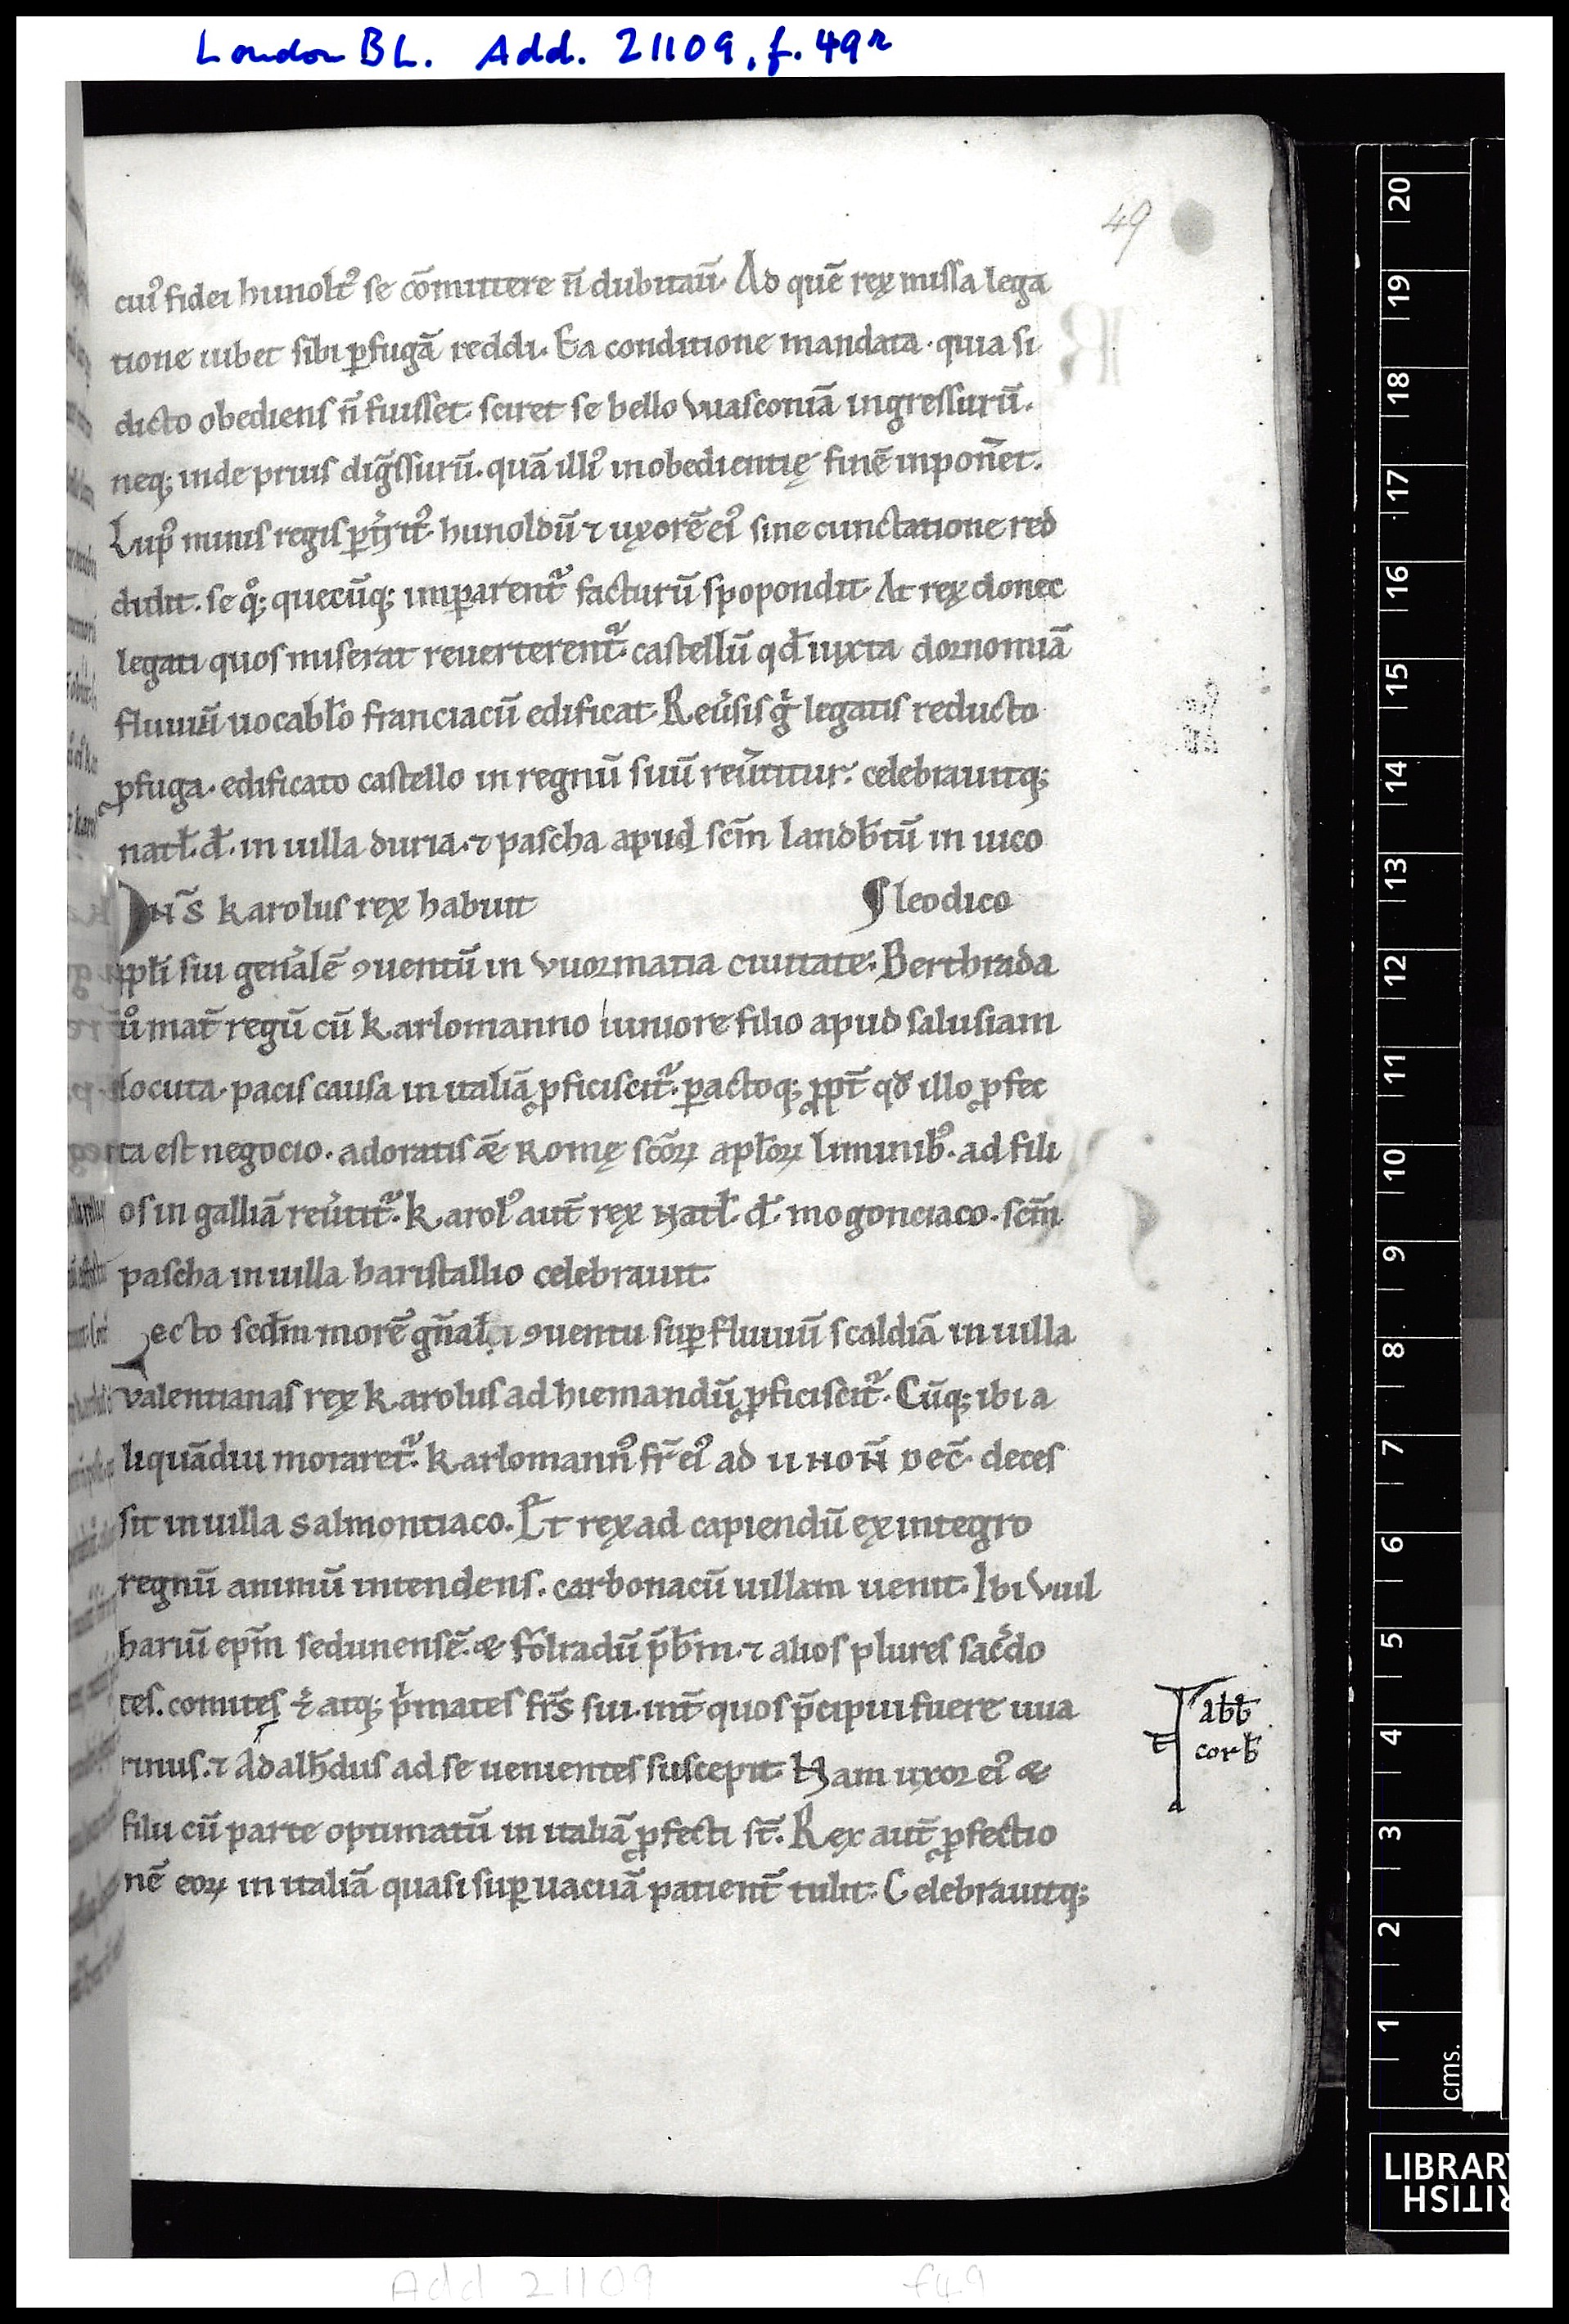 London BL. Add. 21109, f. 49r
49
cuiꝰ fidei hunoltꝰ se cōmittere n̄ dubitaū. Ad quē rex missa lega
tione iubet sibi ꝑfugā reddi. Ea conditione mandata. quia si
dicto obediens n̄ fuisset sciret se bello vuasconiā ingressurū.
neq; inde prius dig̃ssurū. quā illiꝰ inobedientię finē inpon̄et.
Lupꝰ minis regis ꝑt̃ritꝰ hunoldū ⁊ uxorē eiꝰ sine cunctatione red
didit. se q̊; quecūq; imꝑarent᷑ facturū spopondit. At rex donec
legati quos miserat reuerterent᷑. castellū qđ iuxta dornoniā
fluuiū uocabl̄o franciacū edificat. Reu̕sis gͥ legatis reducto
ꝑfuga. edificato castello in regnū suū reu̕titur. celebrauitq;
natl̄. d̄. in uilla duria. ⁊ pascha apud scm̄ landb̄tū in uico
Dn̄s karolus rex habuit ¶ leodico
ppl̄i sui gen̕alē ꝯuentū in vuormatia ciuitate. Berthrada
ů mat̄ regū cū karlomanno iuniore filio apud salusiam
locuta. pacis causa in italiā ꝓficiscit᷑. ꝑactoq; ꝓpt̄ qđ illo ꝓfec
ta est negocio. adoratis & Romę scōꝝ apl̄oꝝ liminibꝰ. ad fili
os in galliā reu̕tit᷑. karolꝰ aut̄ rex Natl̄. d̄. mogonciaco. scm̄
pascha in uilla haristallio celebrauit.
ecto scd̄m morē gn̄al̄i ꝯuentu suꝑ fluuiū scaldiā in uilla
valentianas rex karolus ad hiemandū ꝓficiscit᷑. Cūq; ibi a
liquādiu moraret᷑. karlomannꝰ fr̄ eiꝰ ad ii Non̄ Dec̄. deces
sit in uilla salmontiaco. Et rex ad capiendū ex integro
regnū animū intendens. carbonacū uillam uenit. Ibi vuil
hariū ep̄m sedunensē. & folradū p̄b̄m. ⁊ alios plures sac̕do
tes. comites ⁊ atq; pͥmates fr̄s sui. int̄ quos p̄cipui fuere uua
rinus. ⁊ Adalh̄dus ad se uenientes suscepit. Nam uxor eiꝰ &
abb̄
t corb̄
filii cū parte optimatū in italiā ꝓfecti st̄. Rex aut̄ ꝓfectio
nē eoꝝ in italiā quasi suꝑuacuā patient̄ tulit. Celebrauitq;
Add 21109 f49
20
19
18
17
16
15
14
13
12
11
10
9
8
7
6
5
4
3
2
1
cms.
LIBRAR
RITISH